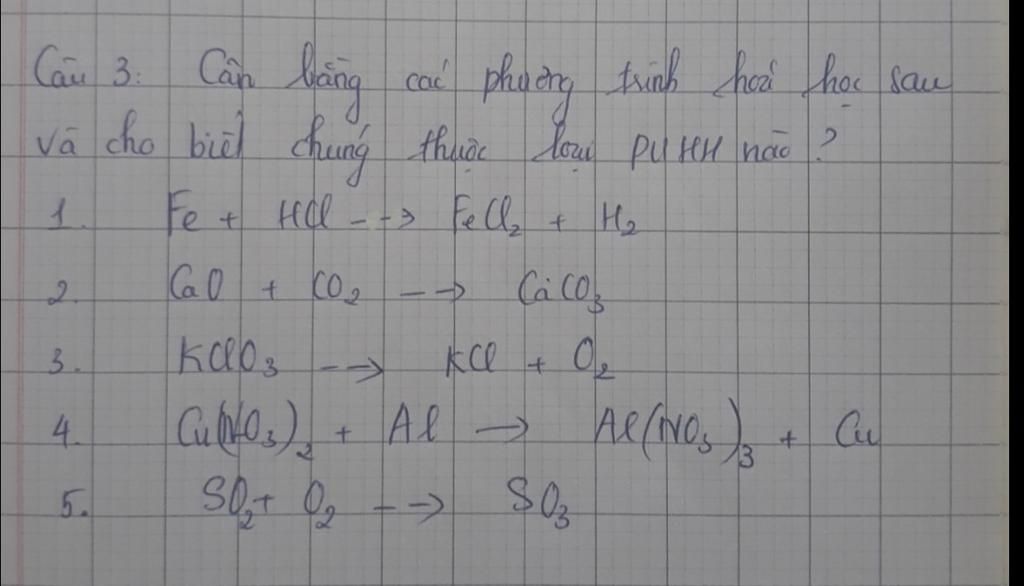 Câu 3: Cân bằng các phương trình hoá học sau
và cho biết chúng thuộc loại PƯHH nào?
1. Fe + HCl --→ FeCl₂ + H₂
2. CaO + CO₂ --→ CaCO₃
3. KClO₃ --→ KCl + O₂
4. Cu(NO₃)₂ + Al → Al(NO₃)₃ + Cu
5. SO₂ + O₂ --→ SO₃